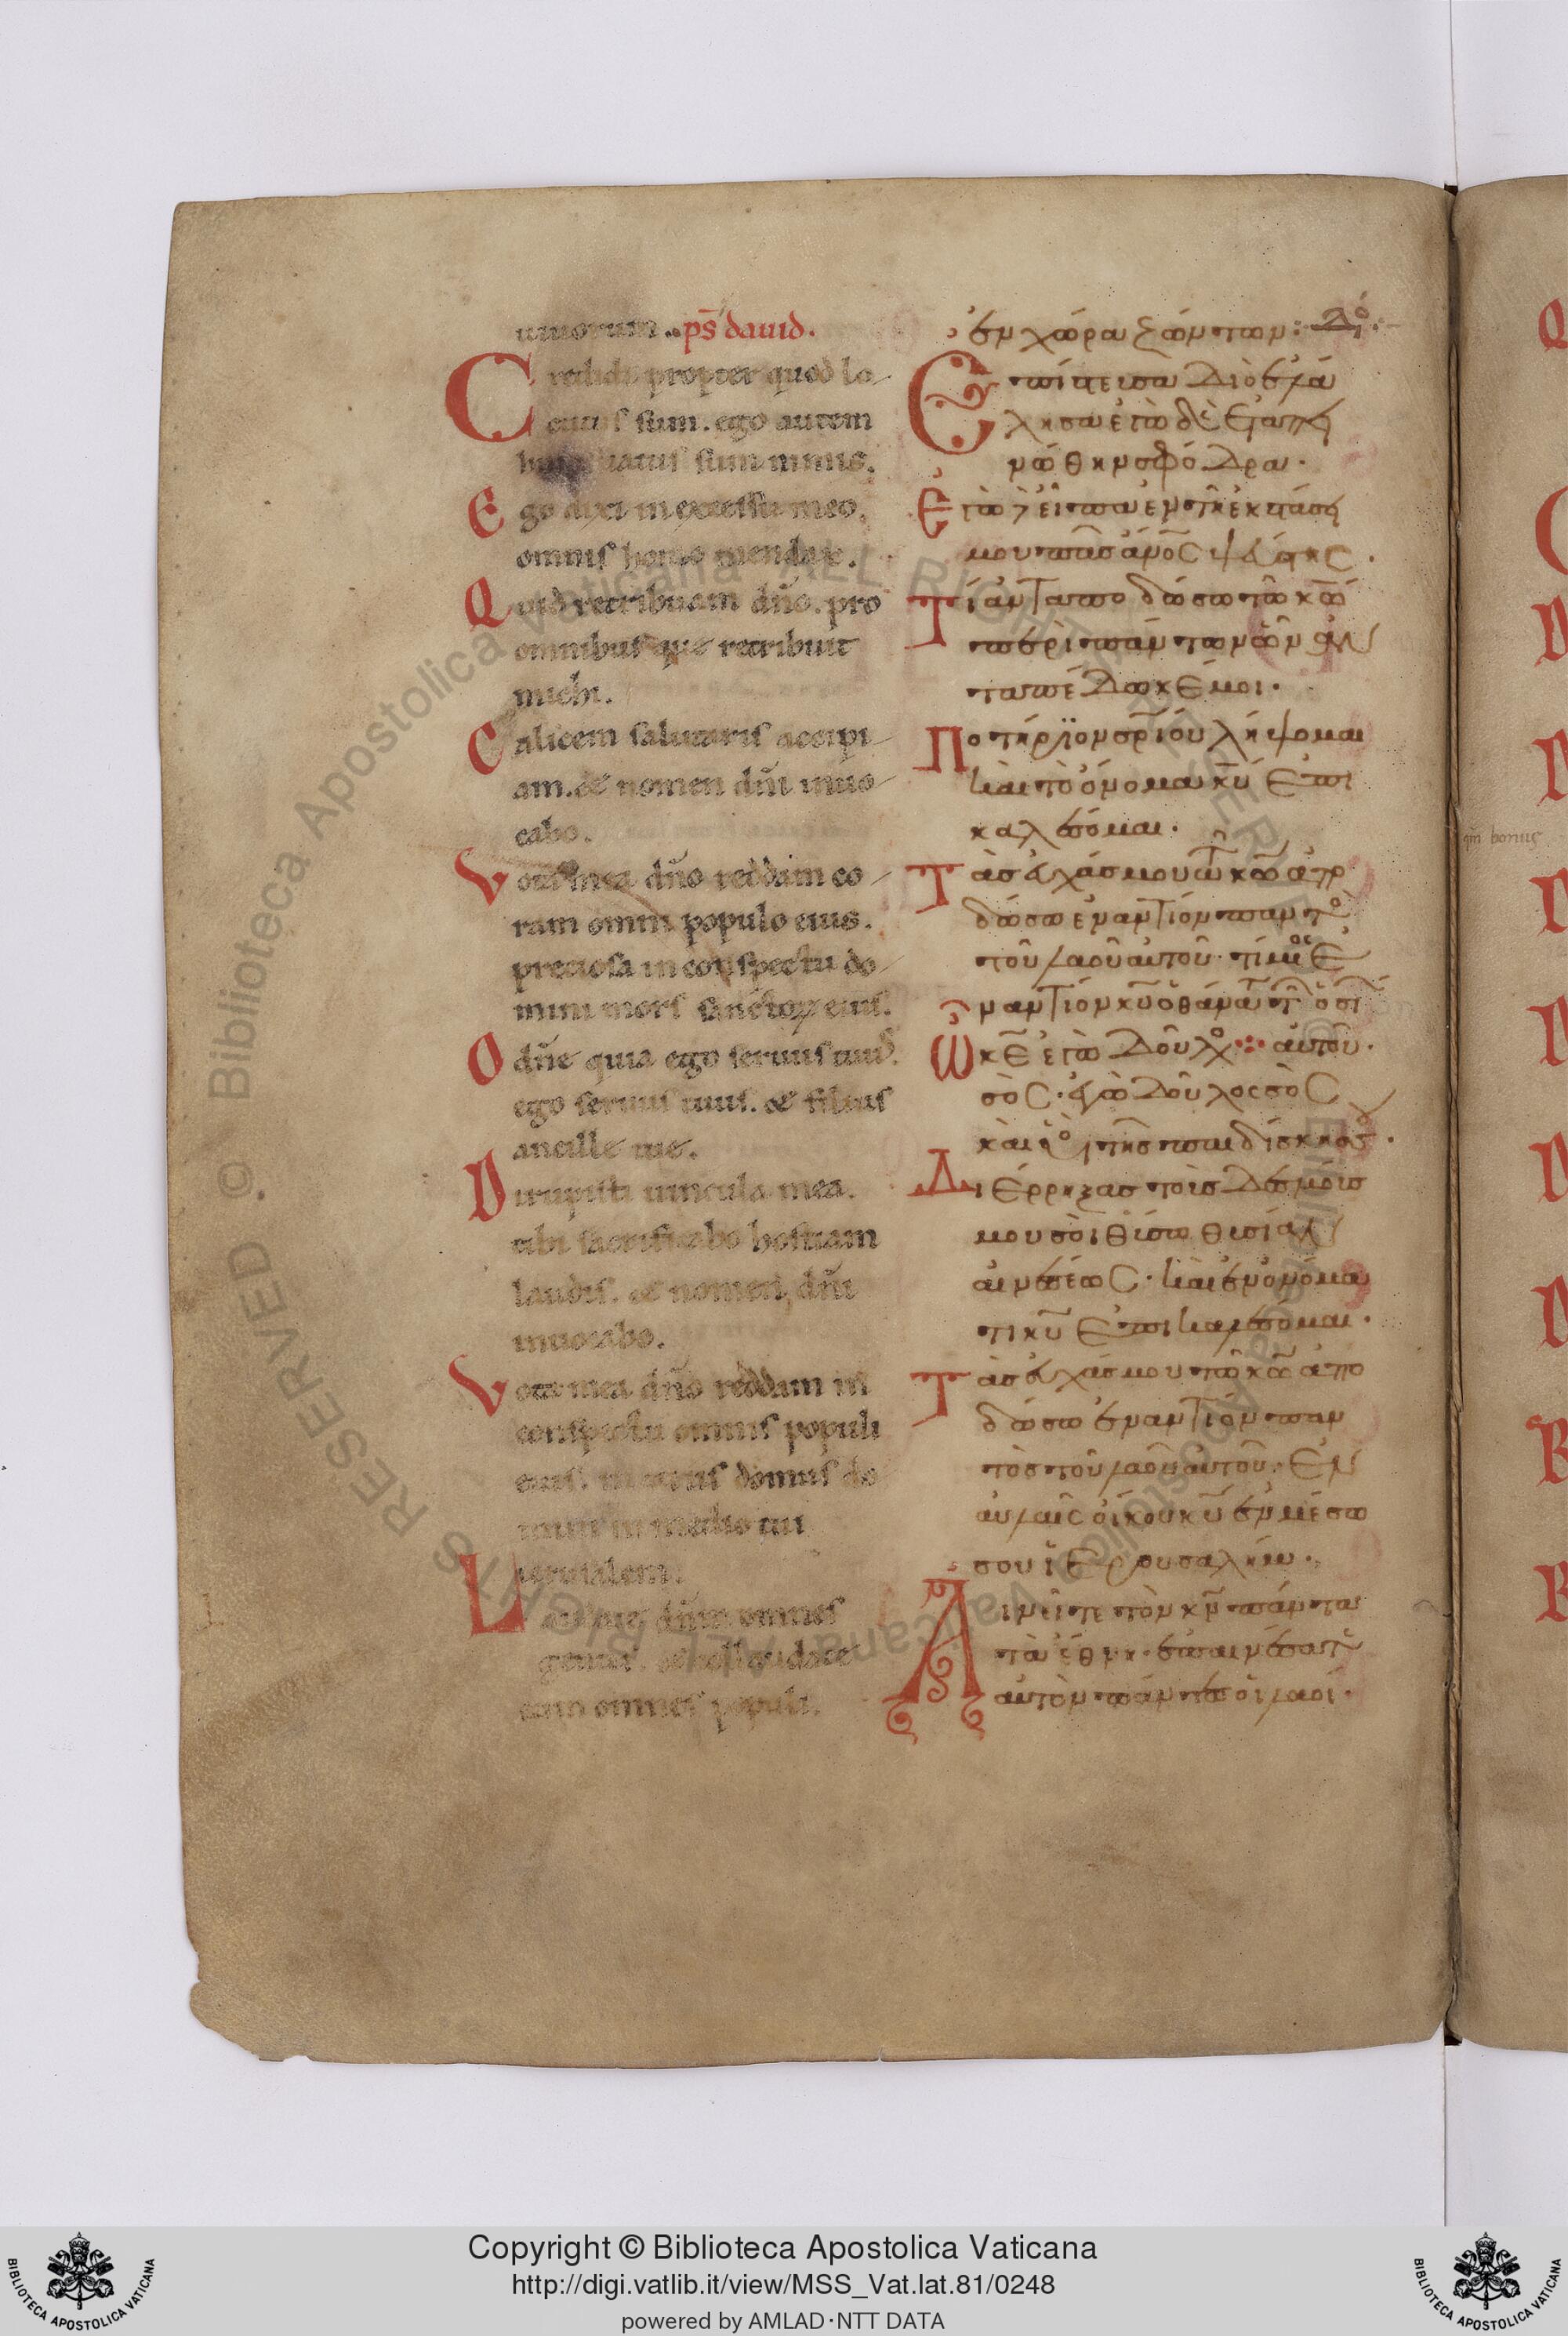 uiuorum. ps̄ dauid.
Credidi propter quod lo-
cutus sum. ego autem
humiliatus sum nimis.
Ego dixi in excessu meo.
omnis homo mendax.
Quid retribuam dño. pro
omnibus que retribuit
michi.
Calicem salutaris accipi-
am. & nomen dñi inuo-
cabo.
Vota mea dño reddam co-
ram omni populo eius.
preciosa in conspectu do-
mini mors sanctoꝝ eius.
O dñe quia ego seruus tuus.
ego seruus tuus. & filius
ancille tue.
Dirupisti uincula mea.
tibi sacrificabo hostiam
laudis. & nomen dñi
inuocabo.
Vota mea dño reddam in
conspectu omnis populi
eius. in atriis domus do
mini in medio tui
ierusalem.
Laudate dñm omnes
gentes. & collaudate
eum omnes populi.
ἐν χώρα ζώντων:
Ἐπίστευσα διὸ ἐλά
λησα ἐγὼ δὲ ἐταπει
νώθην σφόδρα.
Ἐγὼ δὲ εἶπα ἐν τῆ ἐκστάσει
μου πᾶσ ἄν̄ος ψεύστης.
Τί ἀνταποδώσω τῶ κ̄ω
περὶ πάντων ὧν ἀν
ταπέδωκέ μοι.
Ποτήριον σρ̄ίου λήψομαι
καὶ τὸ ὄνομα κ̄υ ἐπι
καλέσομαι.
Τὰσ εὐχάσ μου τῶ κ̄ω ἀπο
δώσω ἐναντίον παντὸ
τοῦ λαοῦ αὐτοῦ. τίμιος ἐ
ναντίον κ̄υ ὁ θάνατος τῶν ὁσίων
Ὦ κ̄ε ἐγὼ δοῦλος αὐτοῦ.
σὸς. ἐγὼ δοῦλος σὸς
καὶ υἱὸς τῆσ παιδίσκησ σου.
Διέρρηξασ τοὶσ δεσμόισ
μου σὸι θύσω θυσίαν
αἰνέσεως. καὶ ἐν ὀνόμα
τι κ̄υ ἐπικαλέσομαι.
Τὰσ εὐχάσ μου τῶ κ̄ω ἀπο
δώσω ἐναντίον παν
τὸσ τοῦ λαοῦ αὐτοῦ. Ἐν
αὐλαῖς οἴκου κ̄υ ἐν μέσω
σου ἰερουσαλήμ.
Αἰνεῖτε τὸν κ̄ν πάντα
τὰ ἔθνη. ἐπαινέσατε
αὐτὸν πάντεσ οἱ λαοί.
qm̄ bonus
Copyright © Biblioteca Apostolica Vaticana
http://digi.vatlib.it/view/MSS_Vat.lat.81/0248
powered by AMLAD·NTT DATA